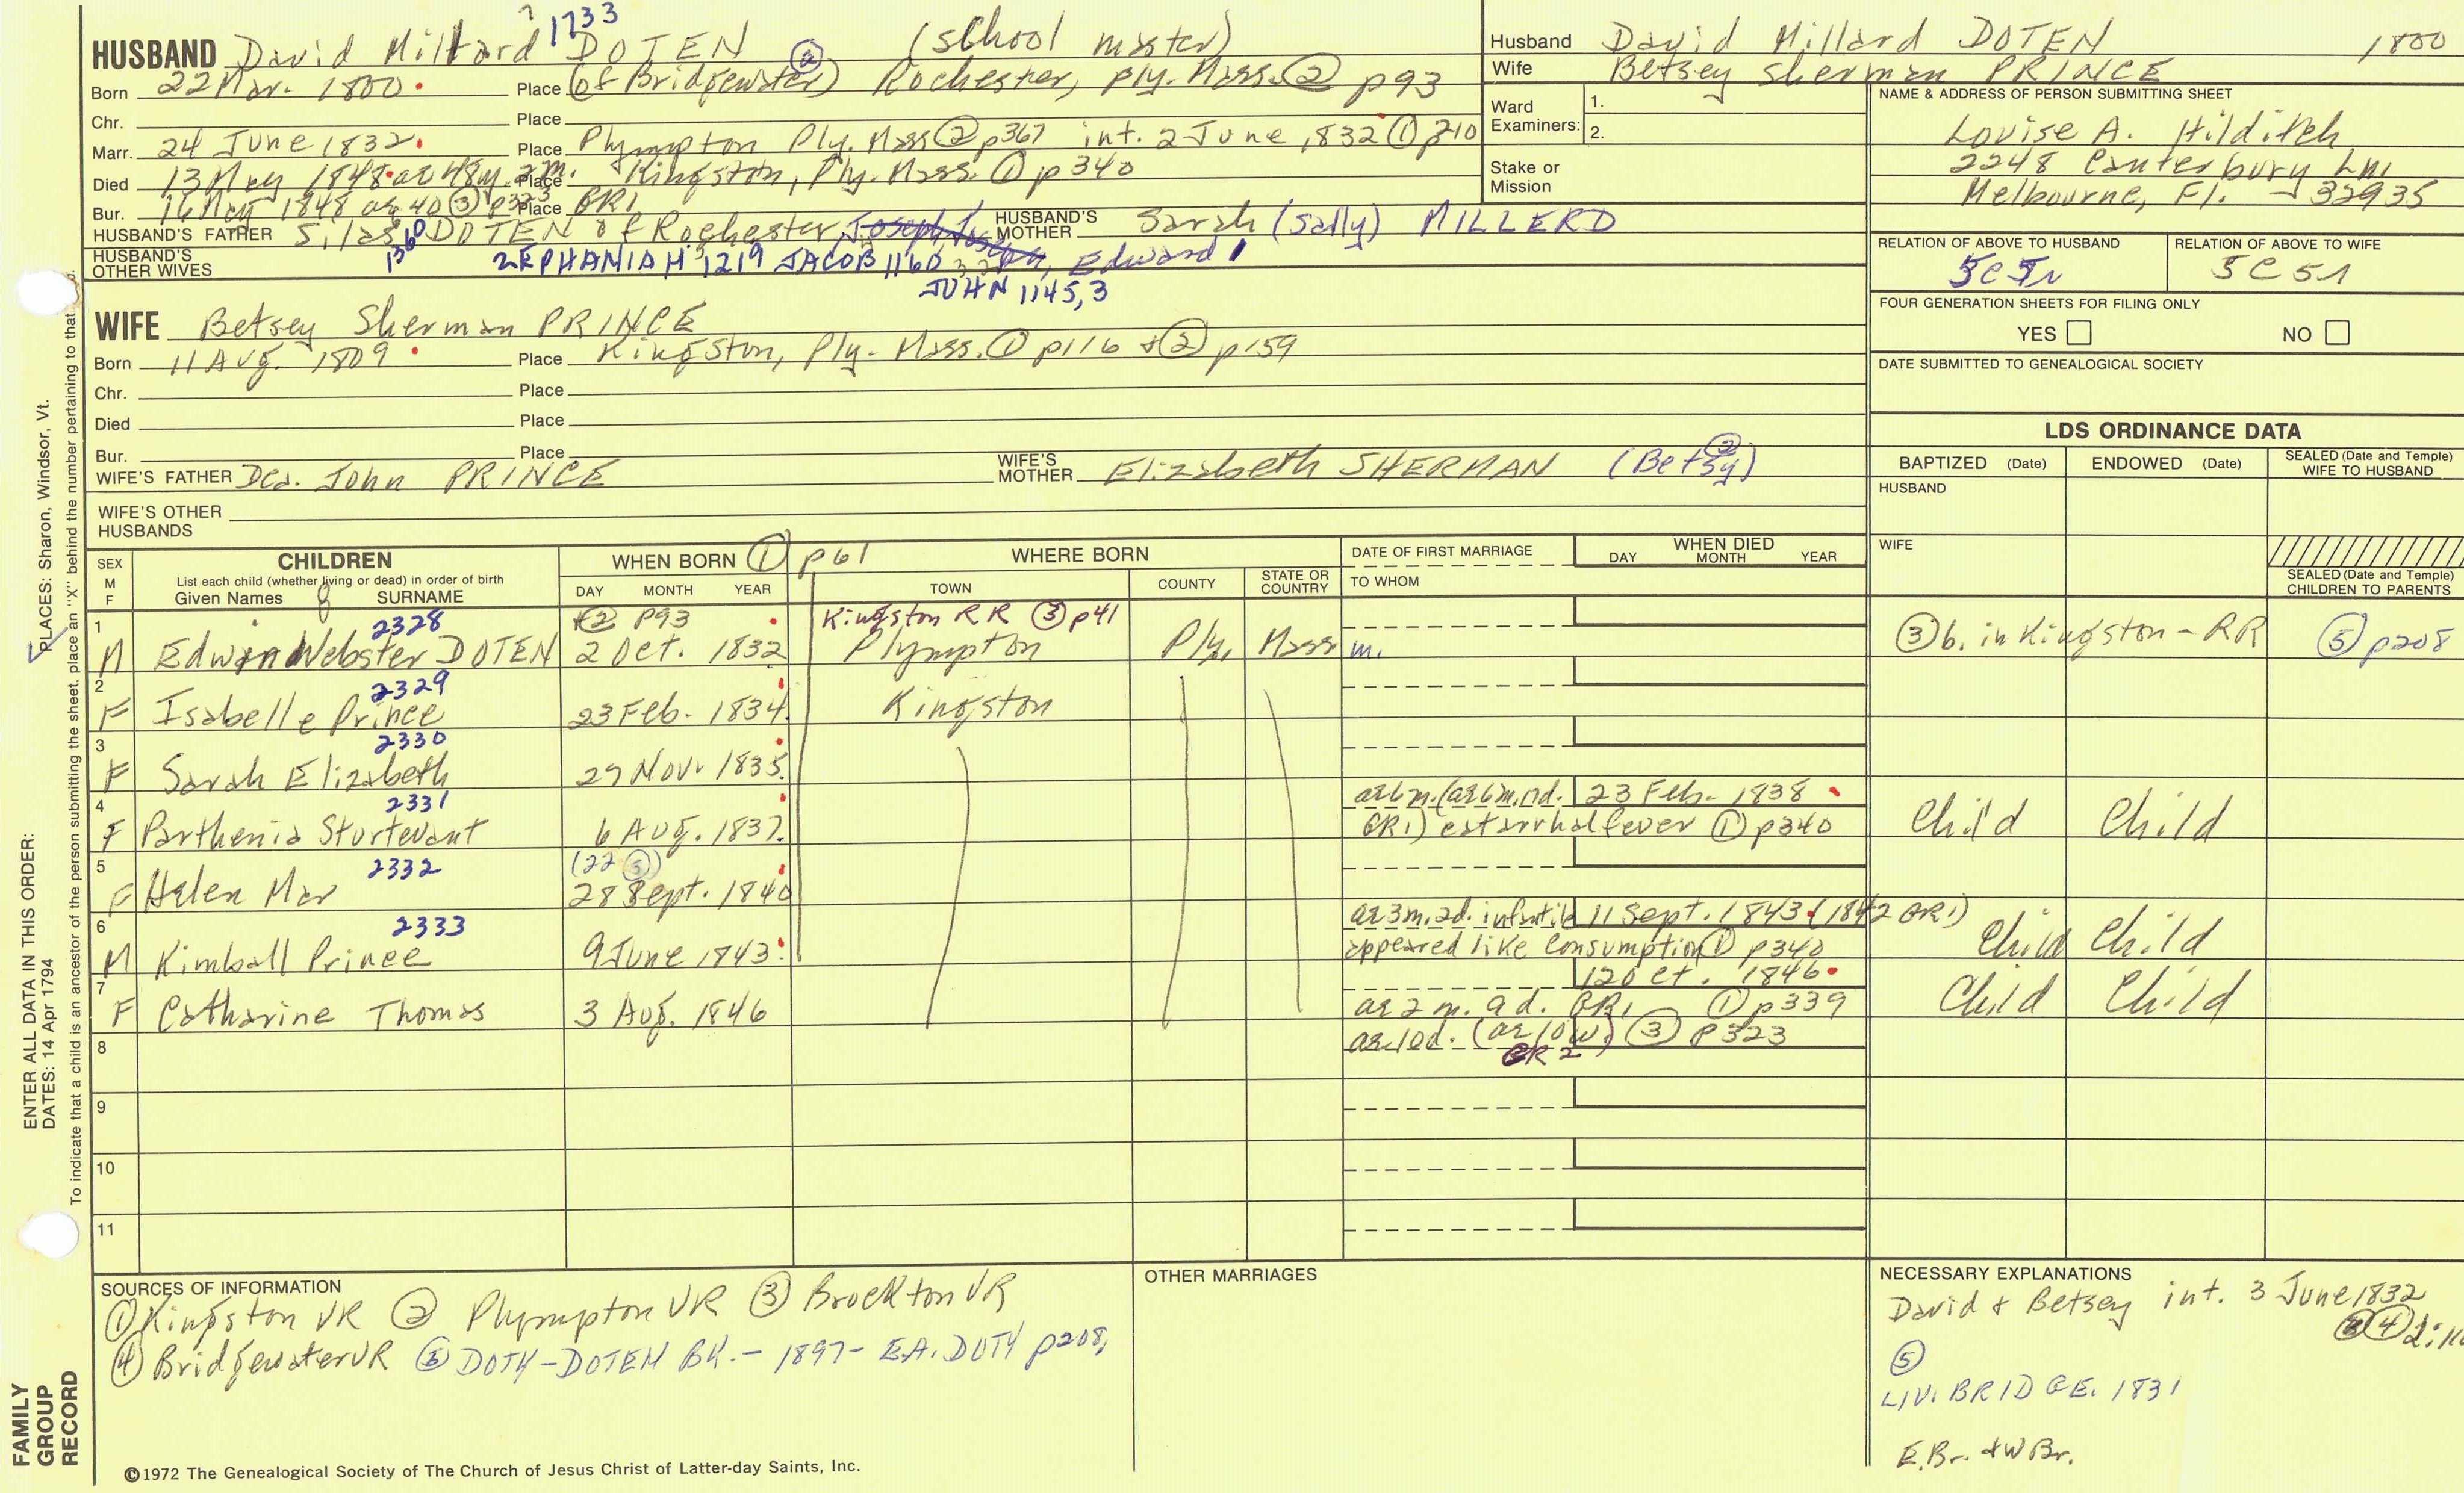 1733
HUSBAND David Millard DOTEN (school master)
Born 22 Mar. 1800. Place (of Bridgewater) ② Rochester, Ply. Mass. ② p93
Chr. Place
Marr. 24 June 1832. Place Plympton Ply. Mass ② p367 int. 2 June 1832 ① p210
Died 13 May 1848 ae 48y. 2m. Place Kingston, Ply. Mass. ① p340
Bur. 16 May 1848 ae 40 ③ p323 Place GR1
HUSBAND'S FATHER Silas DOTEN of Rochester, HUSBAND'S MOTHER Sarah (Sally) MILLERD
HUSBAND'S OTHER WIVES 1360 ZEPHANIAH 1219 JACOB 1160 Edward 1
JOHN 1145,3
Husband David Millard DOTEN 1800
Wife Betsey Sherman PRINCE
Ward Examiners: 1.
2.
Stake or Mission
NAME & ADDRESS OF PERSON SUBMITTING SHEET
Louise A. Hilditch
2248 Canterbury Ln.
Melbourne, Fl. 32935
RELATION OF ABOVE TO HUSBAND RELATION OF ABOVE TO WIFE
5C5r 5C51
FOUR GENERATION SHEETS FOR FILING ONLY
YES NO
DATE SUBMITTED TO GENEALOGICAL SOCIETY
WIFE Betsey Sherman PRINCE
Born 11 Aug. 1809. Place Kingston, Ply. Mass. ① p116 & ② p159
Chr. Place
Died Place
Bur. Place
WIFE'S FATHER Dea. John PRINCE WIFE'S MOTHER Elizabeth SHERMAN (Betsy) ②
WIFE'S OTHER HUSBANDS
LDS ORDINANCE DATA
BAPTIZED (Date) ENDOWED (Date) SEALED (Date and Temple) WIFE TO HUSBAND
HUSBAND
WIFE
SEALED (Date and Temple) CHILDREN TO PARENTS
SEX M F CHILDREN WHEN BORN ① p61 WHERE BORN DATE OF FIRST MARRIAGE WHEN DIED DAY MONTH YEAR
List each child (whether living or dead) in order of birth
Given Names 8 SURNAME DAY MONTH YEAR TOWN COUNTY STATE OR COUNTRY TO WHOM
1 2328 ② P93 Kingston RR ③ p41
M Edwin Webster DOTEN 2 Oct. 1832 Plympton Ply. Mass m. ③ b. in Kingston - RR ⑤ p208
2 2329
F Isabelle Prince 23 Feb. 1834. Kingston
3 2330
F Sarah Elizabeth 29 Nov. 1835.
4 2331 ae 6 m. (ae 6 m. nd. 23 Feb. 1838
F Parthenia Sturtevant 6 Aug. 1837. GR1) catarrhal fever ① p340 Child Child
5 2332 (22 ⑤)
F Helen Mar 28 Sept. 1840
6 2333 ae 3m. 2d. infantile 11 Sept. 1843. (1842 GR1)
M Kimball Prince 9 June 1843. appeared like Consumption ① p340 Child Child
7 12 Oct. 1846.
F Catharine Thomas 3 Aug. 1846 ae 2 m. 9 d. GR1 ① p339 Child Child
8 ae 10d. (ae 10 w) ③ p323
GR2
9
10
11
SOURCES OF INFORMATION
① Kingston VR ② Plympton VR ③ Brockton VR
④ Bridgewater VR ⑤ DOTY-DOTEN BK. - 1897 - E.A. DOTY p208,
OTHER MARRIAGES
NECESSARY EXPLANATIONS
David & Betsey int. 3 June 1832
④
⑤
LIV. BRIDGE. 1831
E.Br. & W Br.
©1972 The Genealogical Society of The Church of Jesus Christ of Latter-day Saints, Inc.
FAMILY GROUP RECORD
ENTER ALL DATA IN THIS ORDER:
DATES: 14 Apr 1794
PLACES: Sharon, Windsor, Vt.
To indicate that a child is an ancestor of the person submitting the sheet, place an "X" behind the number pertaining to that